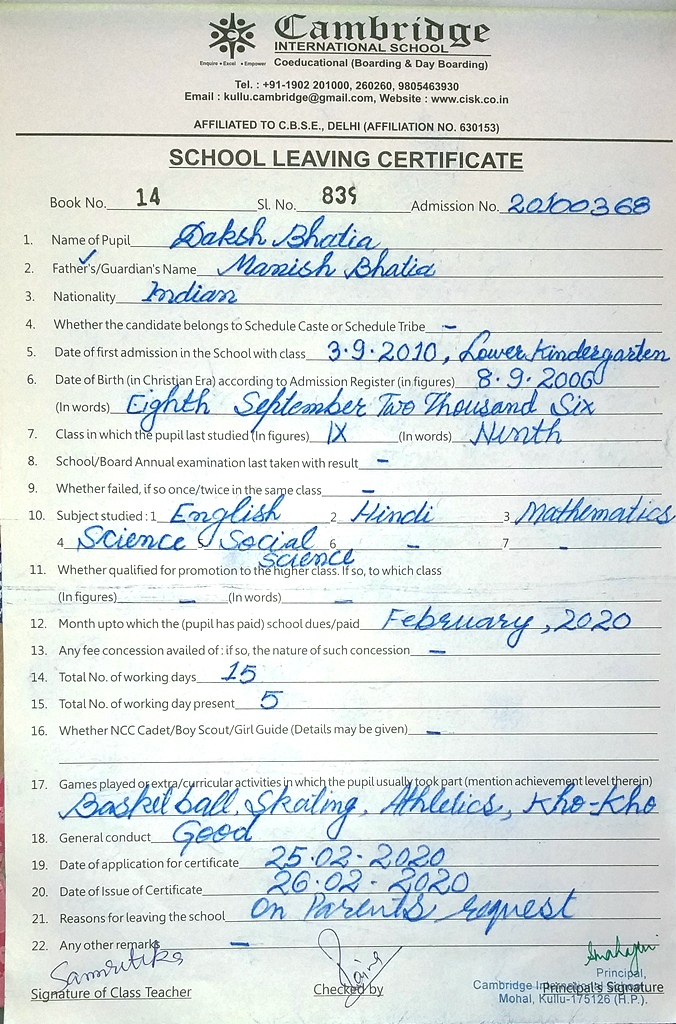 Cambridge
INTERNATIONAL SCHOOL
Enquire • Excel • Empower
Coeducational (Boarding & Day Boarding)
Tel. : +91-1902 201000, 260260, 9805463930
Email : kullu.cambridge@gmail.com, Website : www.cisk.co.in
AFFILIATED TO C.B.S.E., DELHI (AFFILIATION NO. 630153)
SCHOOL LEAVING CERTIFICATE
Book No. 14 Sl. No. 839 Admission No. 20100368
1. Name of Pupil Daksh Bhatia
2. Father's/Guardian's Name Manish Bhatia
3. Nationality Indian
4. Whether the candidate belongs to Schedule Caste or Schedule Tribe –
5. Date of first admission in the School with class 3.9.2010, Lower Kindergarten
6. Date of Birth (in Christian Era) according to Admission Register (in figures) 8.9.2006
(In words) Eighth September Two Thousand Six
7. Class in which the pupil last studied (In figures) IX (In words) Ninth
8. School/Board Annual examination last taken with result –
9. Whether failed, if so once/twice in the same class –
10. Subject studied : 1 English 2 Hindi 3 Mathematics
4 Science 5 Social Science 6 – 7 –
11. Whether qualified for promotion to the higher class. If so, to which class
(In figures) – (In words) –
12. Month upto which the (pupil has paid) school dues/paid February, 2020
13. Any fee concession availed of : if so, the nature of such concession –
14. Total No. of working days 15
15. Total No. of working day present 5
16. Whether NCC Cadet/Boy Scout/Girl Guide (Details may be given) –
17. Games played or extra/curricular activities in which the pupil usually took part (mention achievement level therein)
Basketball, Skating, Athletics, Kho-Kho
18. General conduct Good
19. Date of application for certificate 25.02.2020
20. Date of Issue of Certificate 26.02.2020
21. Reasons for leaving the school On Parents request
22. Any other remarks –
Signature of Class Teacher Checked by Principal's Signature
Principal,
Cambridge International School
Mohal, Kullu-175126 (H.P.).